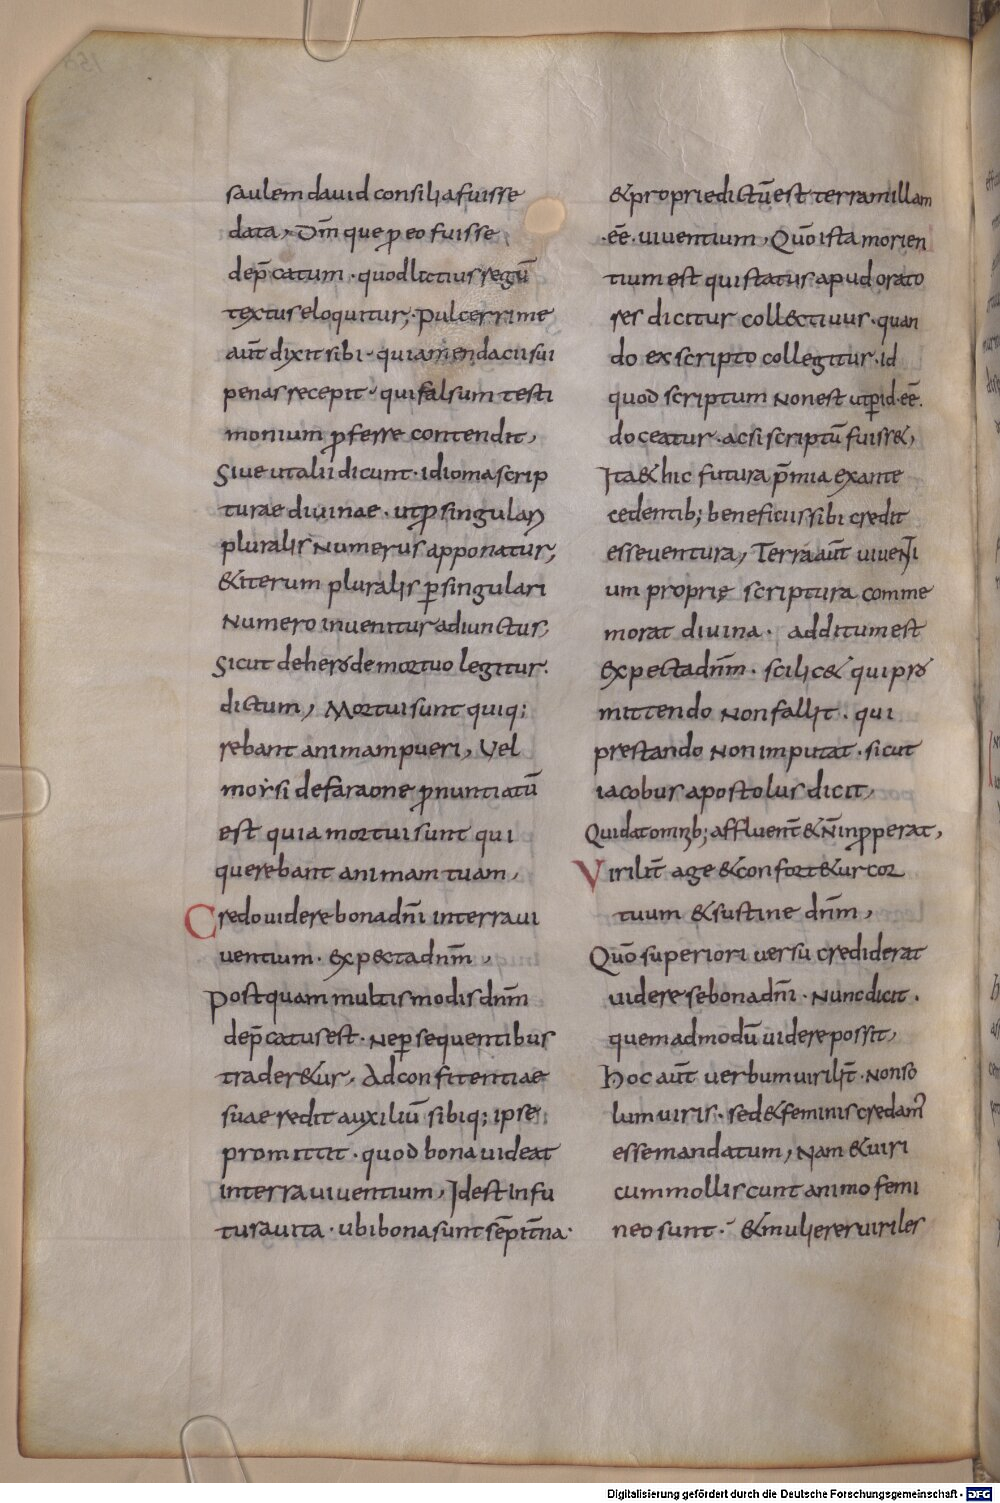 saulem dauid consilia fuisse
data, Dm̄ que p̱ eo fuisse
dep̄catum · quod lectius regū
textus eloquitur; Pulcerrime
aut̄ dixit sibi · quia mendacii sui
penas recepit · qui falsum testi
monium p̱ferre contendit,
Siue ut alii dicunt · idioma scrip
turae diuinae · ut p̱ singulari
pluralis Numerus apponatur,
&iterum pluralis p̱ singulari
Numero inuenitur adiunctus,
Sicut de herode mortuo legitur·
dictum, Mortui sunt qui q;
rebant animam pueri, Vel
moysi de faraone p̱nuntiatū
est quia mortui sunt qui
querebant animam tuam,
Credo uidere bona dn̄i in terra ui
uentium · Expecta dnm̄,
Postquam multis modis dnm̄
dep̄catus est · Ne p̱sequentibus
trader&ur, Ad confitentiae
suae redit auxiliū sibiq; ipse
promittit · quod bona uideat
in terra uiuentium, Id est in fu
tura uita · ubi bona sunt sēpit̄na·
& proprie dictū est terram illam
·eē· uiuentium, Quō ista morien
tium est qui status apud orato
res dicitur collectiuus · quan
do ex scripto collegitur · id
quod scriptum Non est ut p̱ id · eē·
doceatur · ac si scriptū fuiss&,
Ita & hic futura p̄mia ex ante
cedentib; beneficiis sibi credit
esse uentura, Terra aut̄ uiuenti
um proprię scriptura comme
morat diuina · additum est
Expecta dnm̄ · scilic& qui pro
mittendo Non fallit · qui
prestando Non imputat · sicut
iacobus apostolus dicit,
Qui dat omīb; affluent̄ & N̄ inp̱perat,
Virilit̄ age & confort&ur cor
tuum & sustine dnm̄,
Quō superiori uersu crediderat
uidere se bona dn̄i · Nunc dicit ·
quemadmodū uidere possit,
Hoc aut̄ uerbum uirilit̄ · Non so
lum uiris · sed & feminis credam̄
esse mandatum, Nam & uiri
cum molliscunt animo femi
neo sunt · & mulieres uiriles
Digitalisierung gefördert durch die Deutsche Forschungsgemeinschaft - DFG